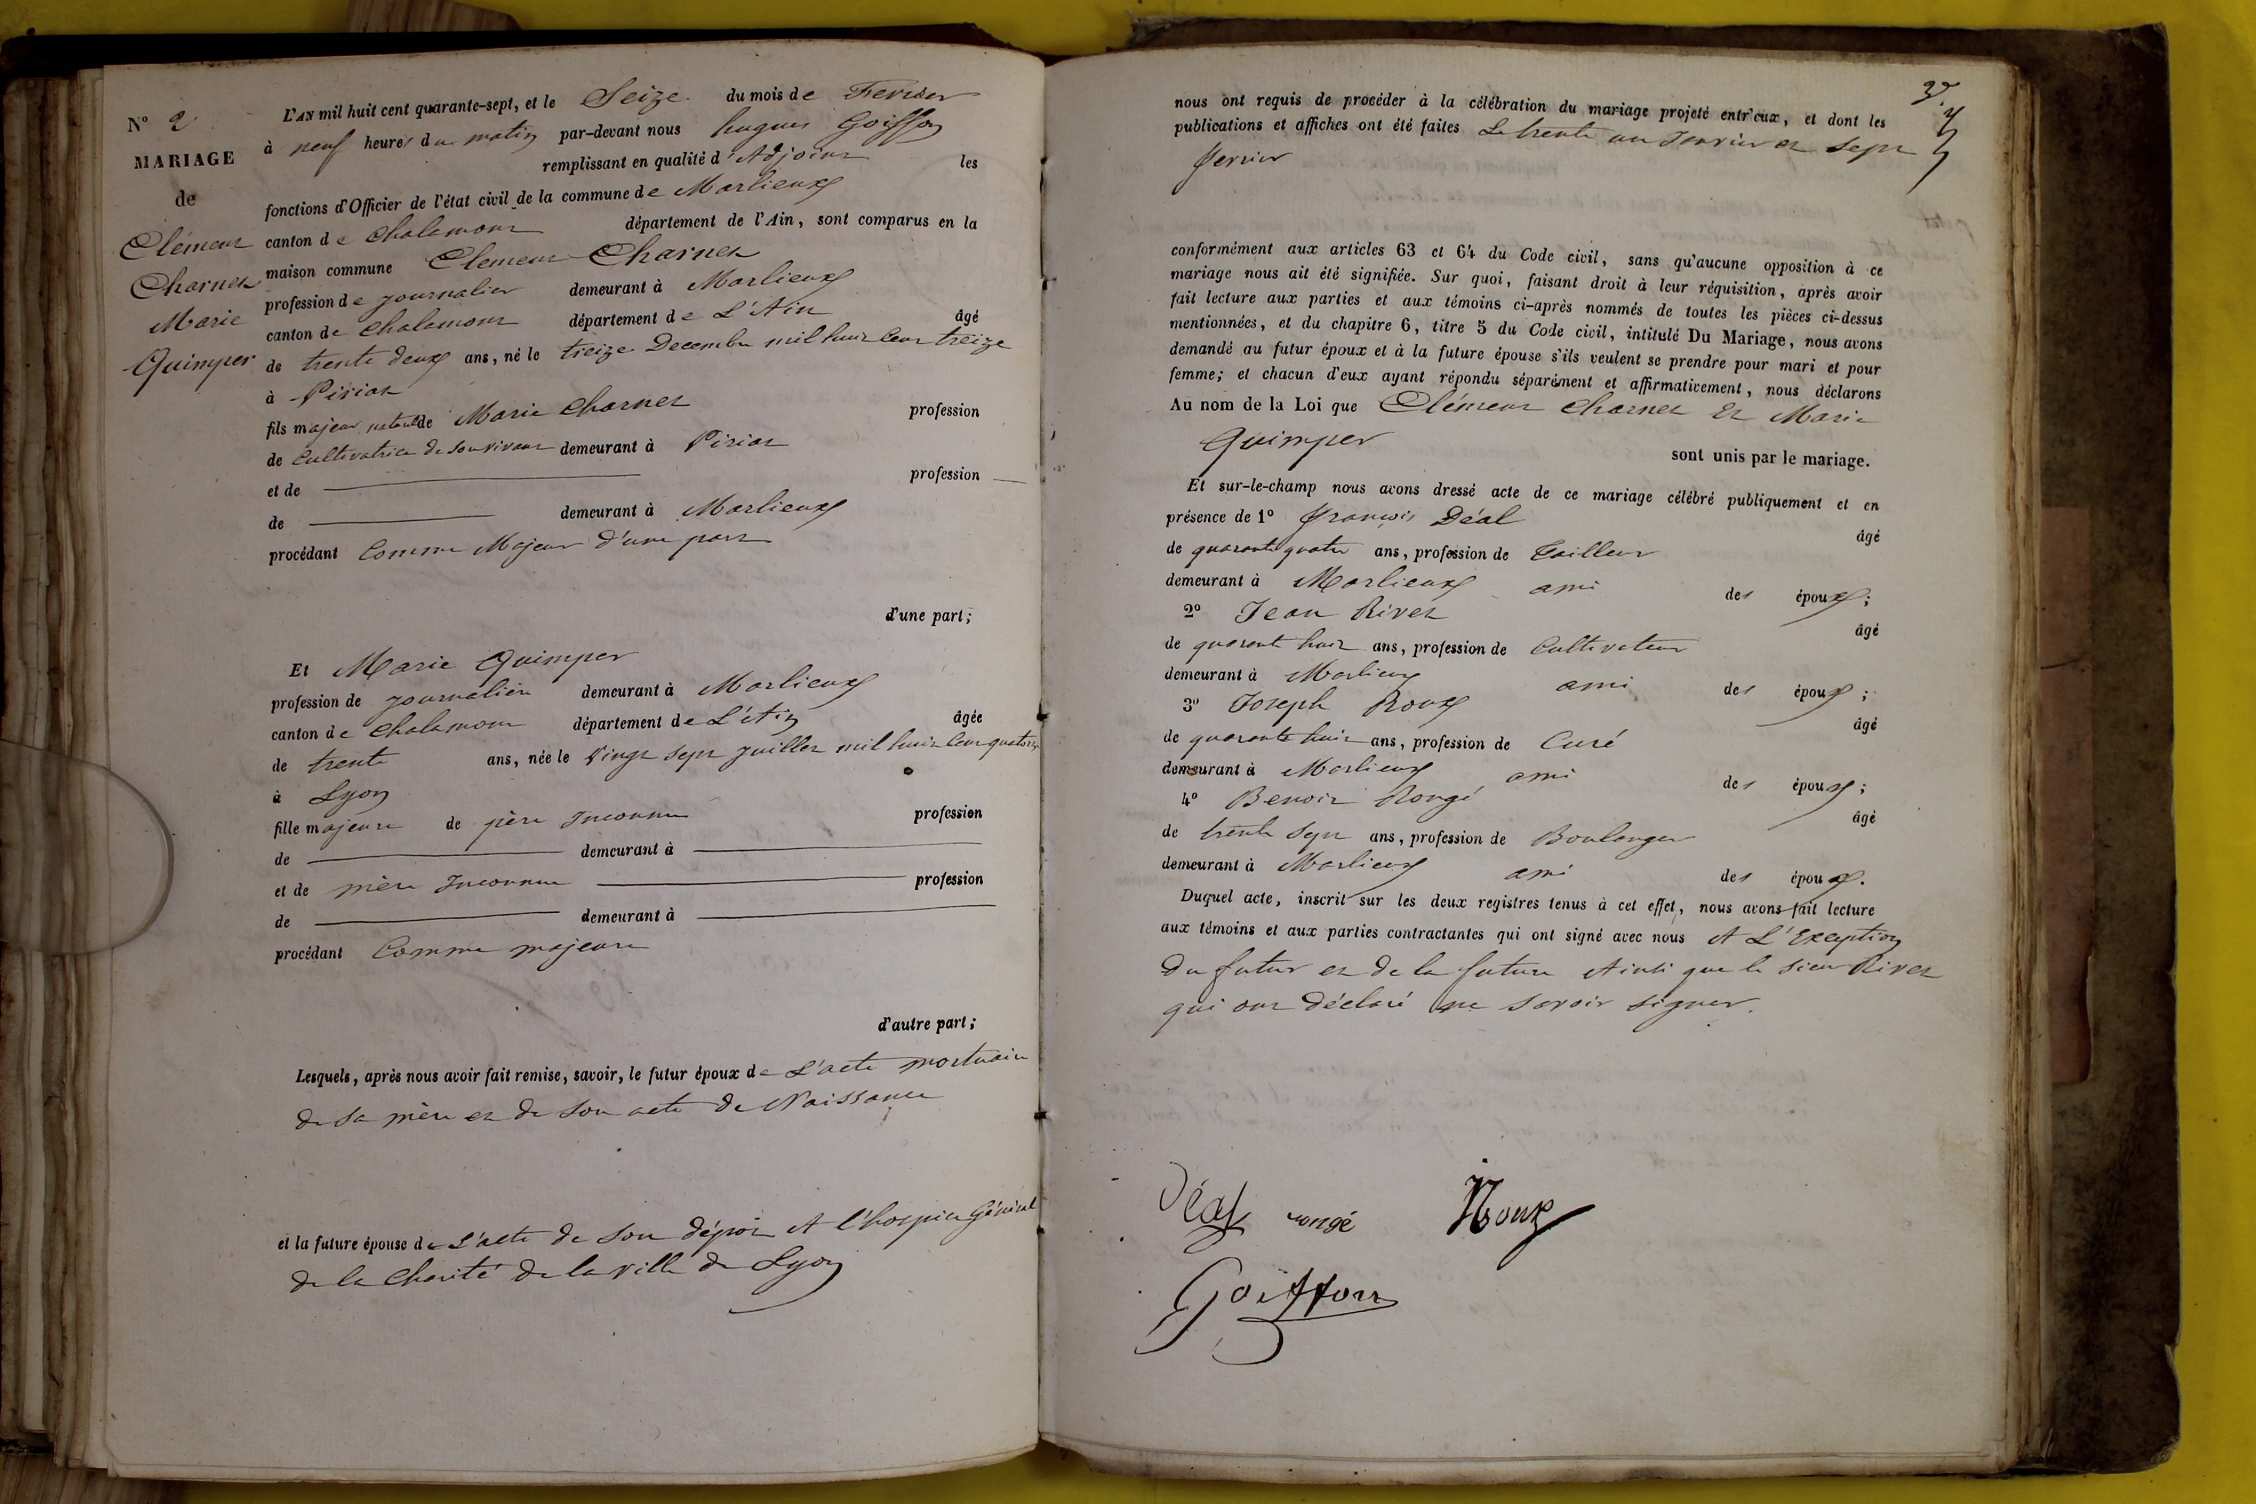 N° 2
MARIAGE
de
Clément
Charnet
Marie
Quimper
L'AN mil huit cent quarante-sept, et le Seize du mois de Fevrier
à neuf heures du matin par-devant nous hugues Goiffon
remplissant en qualité d'Adjoint les
fonctions d'Officier de l'état civil de la commune de Marlieux
canton de Chalamont département de l'Ain, sont comparus en la
maison commune Clement Charnet
profession de journalier demeurant à Marlieux
canton de Chalamont département de L'Ain âgé
de trente deux ans, né le treize Decembre mil huit Cent treize
à Pirian
fils majeur naturel de Marie Charnet profession
de Cultivatrice de son vivant demeurant à
et de profession
de demeurant à Marlieux
procédant Comme Majeur d'une part
d'une part;
Et Marie Quimper
profession de journalière demeurant à Marlieux
canton de Chalamont département de L'Ain âgée
de trente ans, née le Vingt Sept juillet mil huit Cent quatorze
à Lyon
fille majeure de père Inconnu profession
de demeurant à
et de mère Inconnue profession
de demeurant à
procédant Comme majeure
d'autre part;
Lesquels, après nous avoir fait remise, savoir, le futur époux de L'acte mortuaire
de sa mère et de son acte de Naissance
et la future épouse de L'acte de son dépôt A l'hospice Général
de la Charité de la ville de Lyon
3
nous ont requis de procéder à la célébration du mariage projeté entr'eux, et dont les
publications et affiches ont été faites Le trente un Janvier et Sept
fevrier
conformément aux articles 63 et 64 du Code civil, sans qu'aucune opposition à ce
mariage nous ait été signifiée. Sur quoi, faisant droit à leur réquisition, après avoir
fait lecture aux parties et aux témoins ci-après nommés de toutes les pièces ci-dessus
mentionnées, et du chapitre 6, titre 5 du Code civil, intitulé Du Mariage, nous avons
demandé au futur époux et à la future épouse s'ils veulent se prendre pour mari et pour
femme; et chacun d'eux ayant répondu séparément et affirmativement, nous déclarons
Au nom de la Loi que Clément Charnet Et Marie
Quimper
sont unis par le mariage.
Et sur-le-champ nous avons dressé acte de ce mariage célébré publiquement et en
présence de 1° françois Déal
âgé
de quarante quatre ans, profession de Tailleur
demeurant à Marlieux ami des époux;
2° Jean Rivet
âgé
de quarante huit ans, profession de Cultivateur
demeurant à Marlieux ami des époux;
3° Joseph Roux
âgé
de quarante huit ans, profession de Curé
demeurant à Marlieux ami des époux;
4° Benoit Rongé
âgé
de trente Sept ans, profession de Boulanger
demeurant à Marlieux ami des époux.
Duquel acte, inscrit sur les deux registres tenus à cet effet, nous avons fait lecture
aux témoins et aux parties contractantes qui ont signé avec nous A L'Exception
du futur et de la future Ainsi que le sieur Rivet
qui ont déclaré ne savoir signer.
Déal rongé Roux
Goiffon